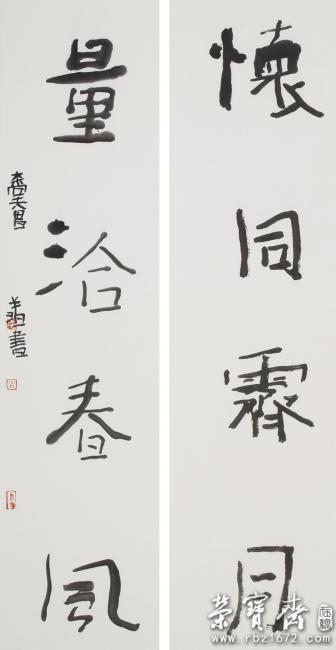 懷同霽月
量洽春風
榮寶齋
www.rbz1672.com